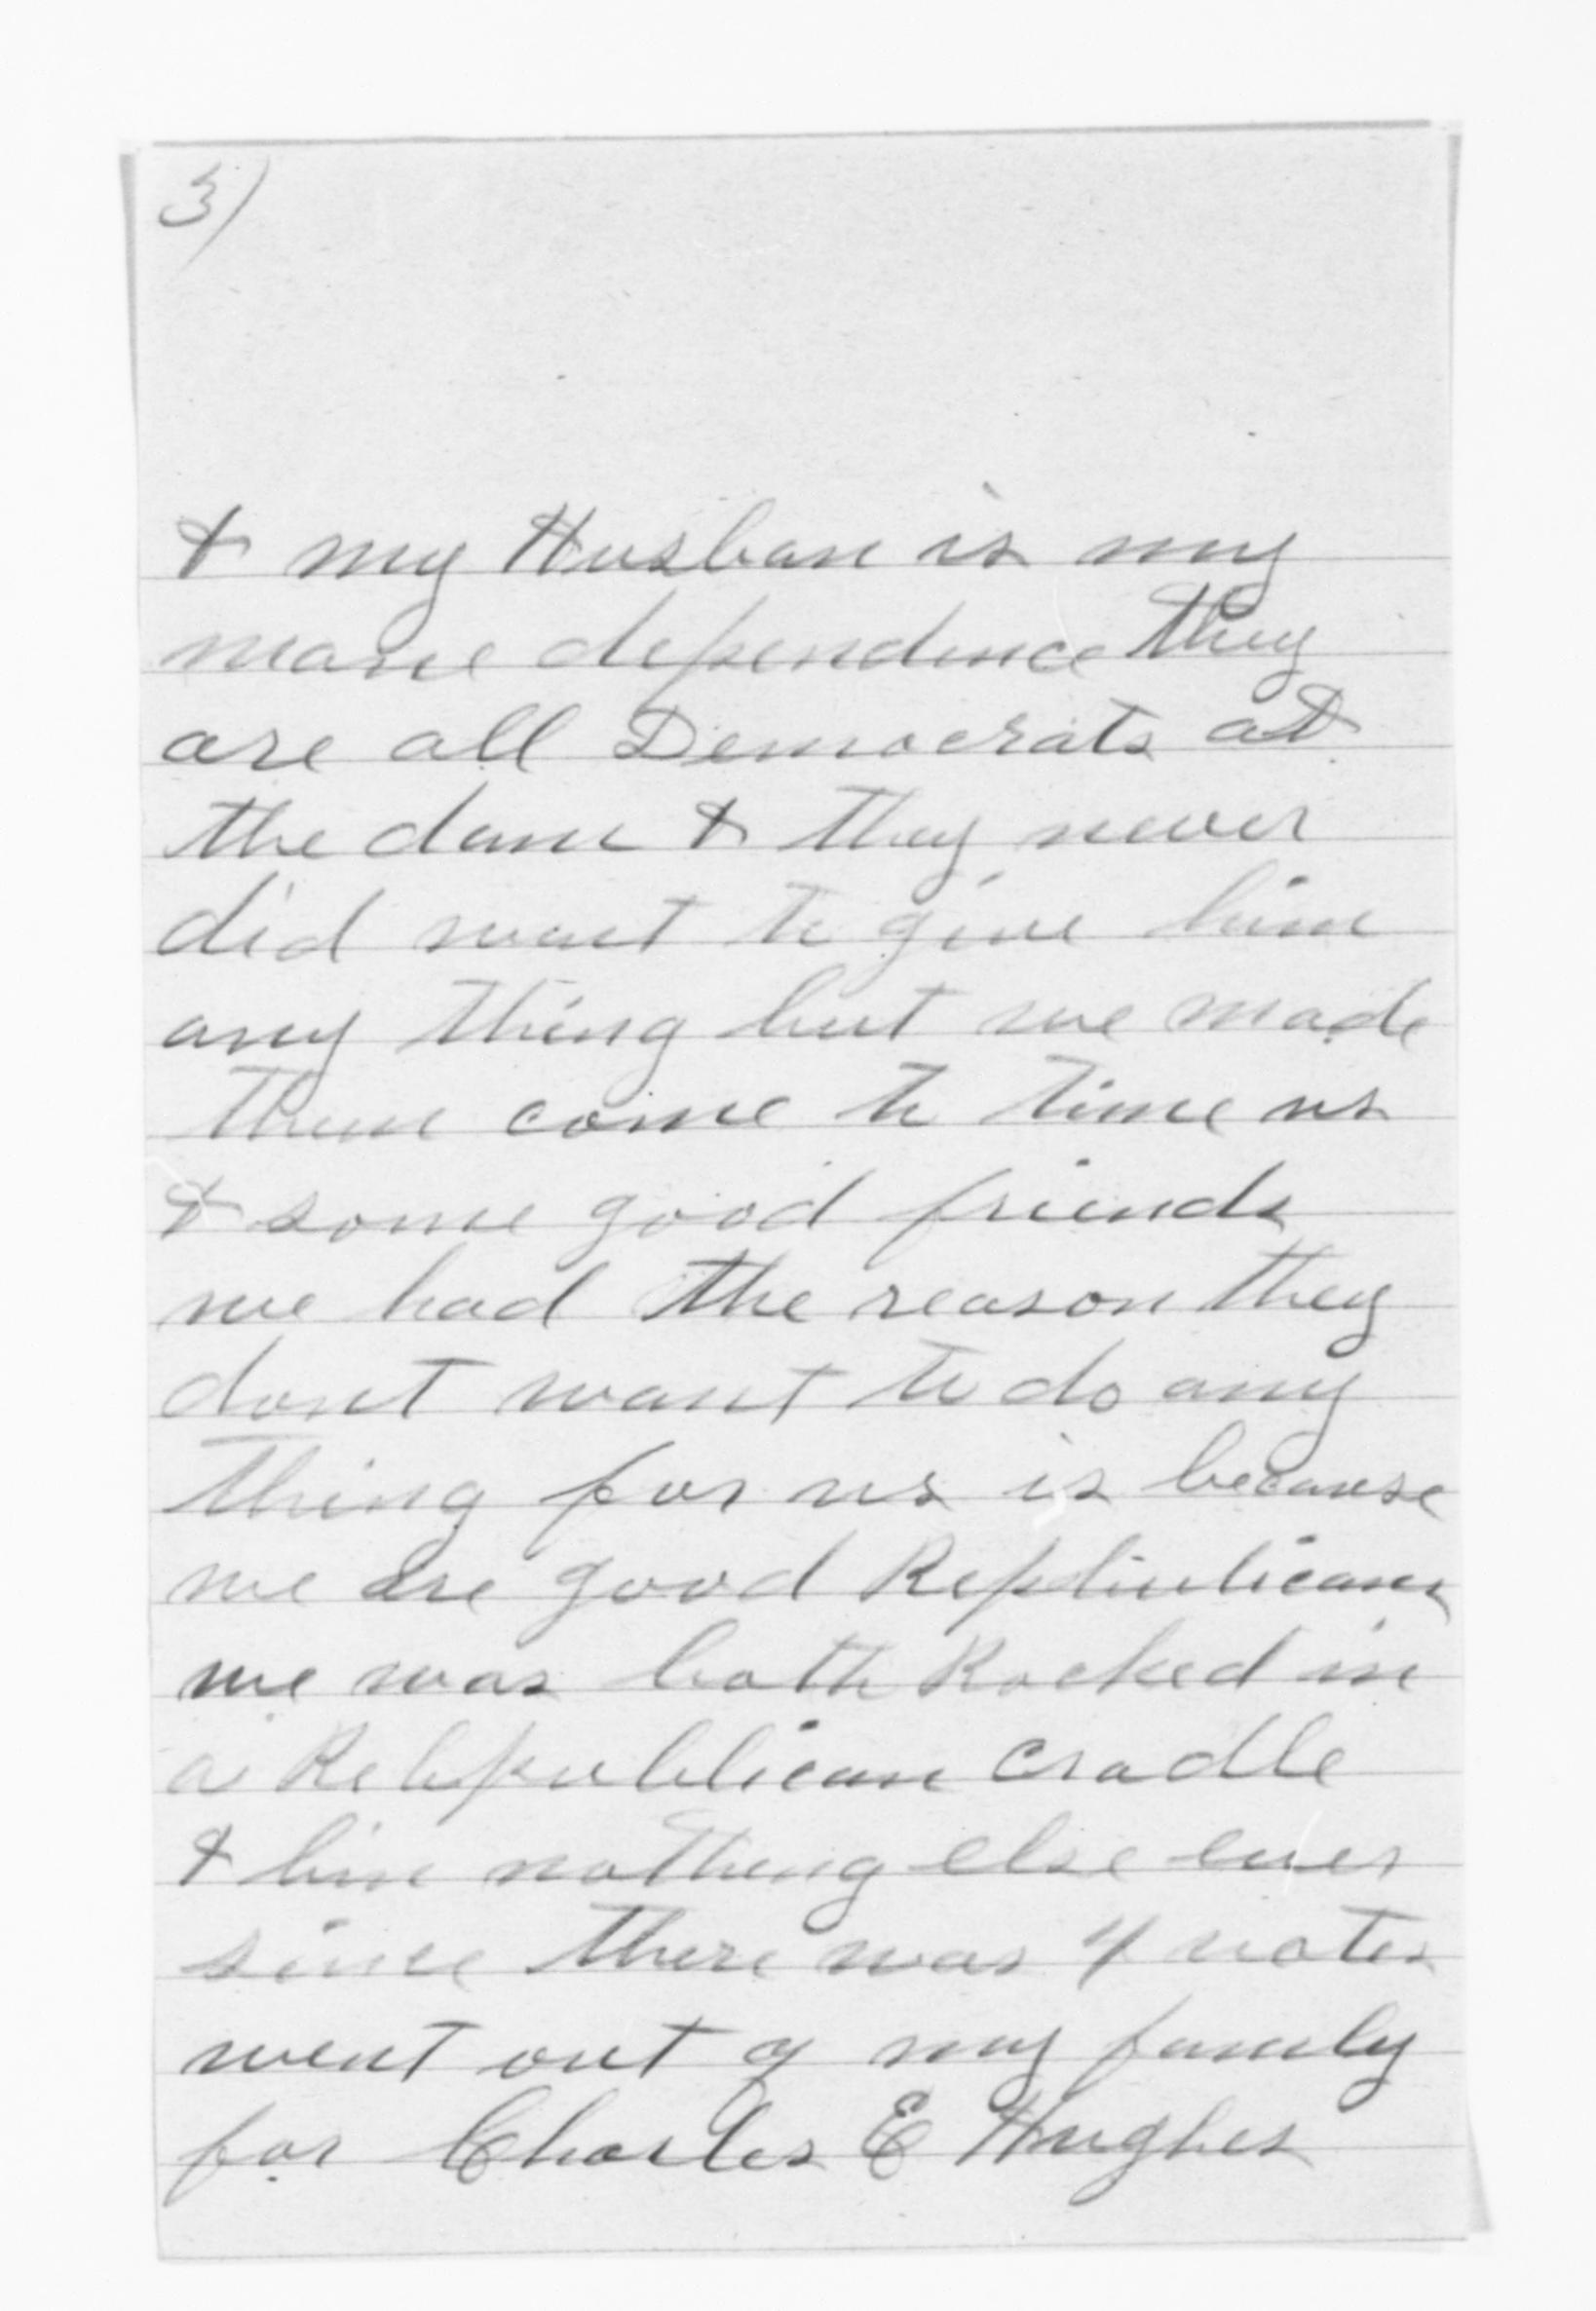 3)
& my Husban is my
mane dependence they
are all Democrats at
the dam & they never
did want to give him
any thing but we made
them come to time us
& some good friends
we had the reason they
dont want to do any
thing for us is because
we are good Repliublicans
we was both Rocked in
a Rebpublican cradle
& bin nothing else ever
since there was 4 votes
went out of my family
for Charles E Hughes